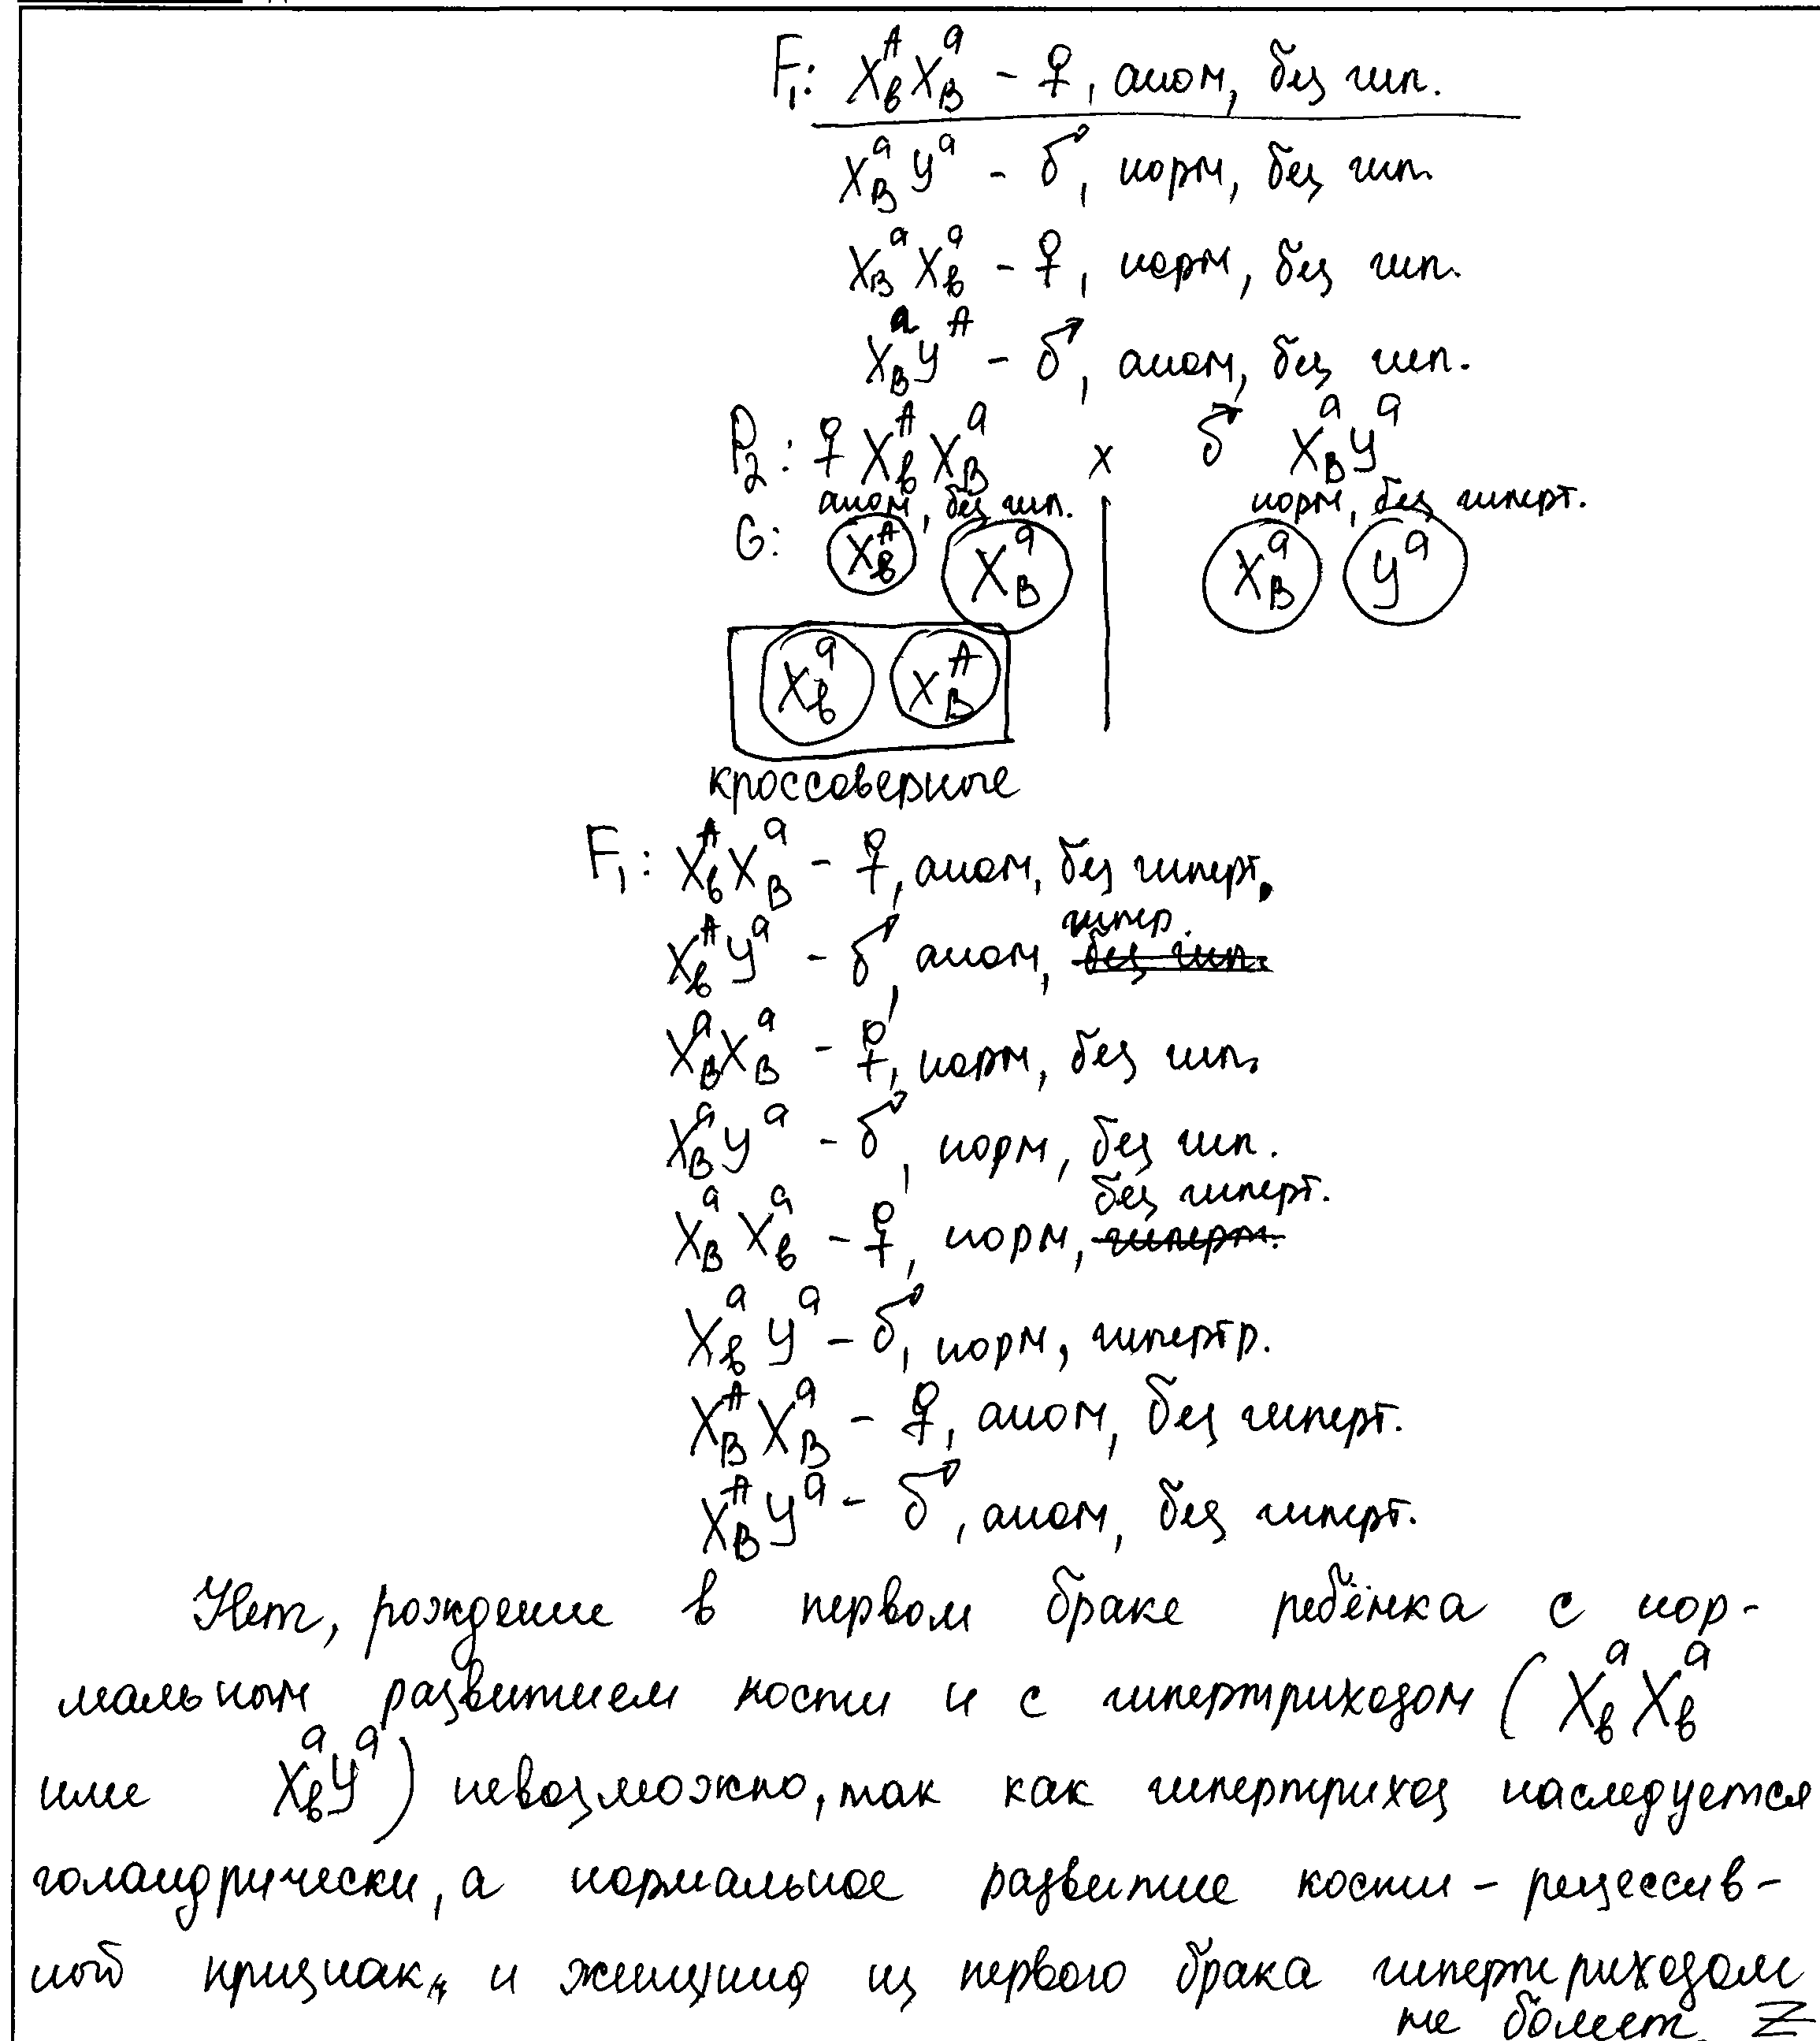 F₁: XᴬbXᵃB - ♀, аном, без гип.
XᵃBYᵃ - ♂, норм, без гип.
XᵃBXᵃb - ♀, норм, без гип.
XᵃBYᴬ - ♂, аном, без гип.
P₂: ♀ XᴬbXᵃB x ♂ XᵃBYᵃ
аном, без гип. норм, без гиперт.
G: Xᴬb XᵃB XᵃB Yᵃ
Xᵃb XᴬB
кроссоверные
F₁: XᴬbXᵃB - ♀, аном, без гиперт.
гипер.
XᴬbYᵃ - ♂, аном, без гип.
XᵃBXᵃB - ♀, норм, без гип.
XᵃBYᵃ - ♂, норм, без гип.
без гиперт.
XᵃBXᵃb - ♀, норм, гиперт.
XᵃbYᵃ - ♂, норм, гипертр.
XᴬBXᵃB - ♀, аном, без гиперт.
XᴬBYᵃ - ♂, аном, без гиперт.
Нет, рождение в первом браке ребёнка с нор-
мальным развитием кости и с гипертриходом (XᵃbXᵃb
или XᵃbYᵃ) невозможно, так как гипертрихоз наследуется
голандрически, а нормальное развитие кости - рецессив-
ной признак, и женщина из первого брака гипертриходом
не болеет. Z